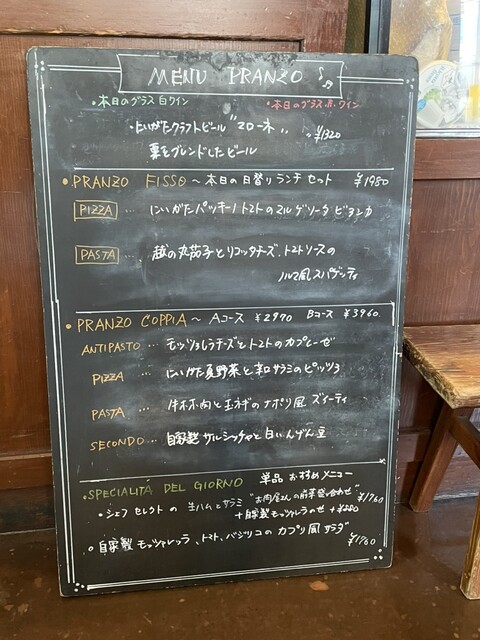 MENU PRANZO
・本日のグラス白ワイン ・本日のグラス赤ワイン
・にいがたクラフトビール "ZOーネ" ¥1320
栗をブレンドしたビール
・PRANZO FISSO ～本日の日替りランチセット ¥1980
PIZZA にいがたパッキーノトマトのマルゲリータビアンカ
PASTA 越の丸茄子とリコッタチーズ、トマトソースの
ノルマ風スパゲッティ
・PRANZO COPPIA ～ Aコース ¥2970 Bコース ¥3960
ANTIPASTO … モッツァレラチーズとトマトのカプレーゼ
PIZZA … にいがた夏野菜と辛口サラミのピッツァ
PASTA … 牛ホホ肉と玉ネギのナポリ風 ズィーティ
SECONDO … 自家製サルシッチャと白いんげん豆
・SPECIALITÁ DEL GIORNO 単品おすすめメニュー
・シェフセレクトの生ハムとサラミ "お肉屋さんの前菜盛り合わせ" ¥1760
+自家製モッツァレラのせ +¥220
○自家製モッツァレッラ、トマト、バジリコのカプリ風サラダ" ¥1760